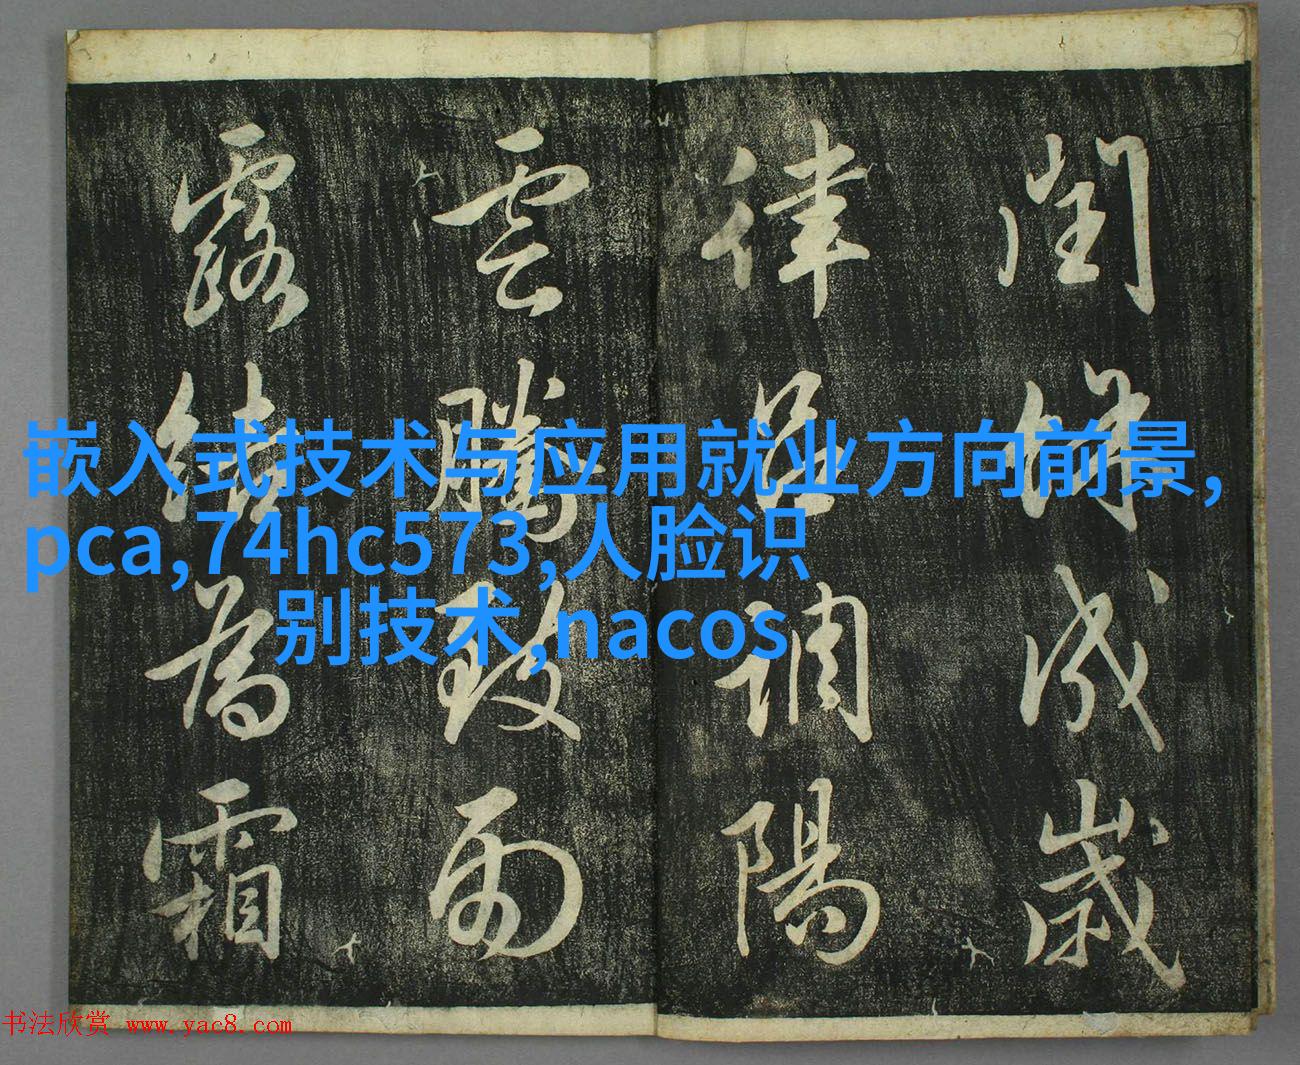 閏餘成歲
律呂調陽
雲騰致雨
露結為霜
嵌入式技术与应用就业方向前景,
pca,74hc573,人脸识
别技术,nacos
书法欣赏 www.yac8.com